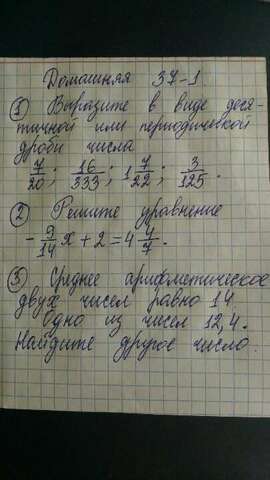 Домашняя 37-1.
① Выразите в виде деся-
тичной или периодической
дроби числа
7/20; 16/333; 1 7/22; 3/125.
② Решите уравнение
- 9/14 x + 2 = 4 4/7.
③ Среднее арифметическое
двух чисел равно 14.
Одно из чисел 12,4.
Найдите другое число.